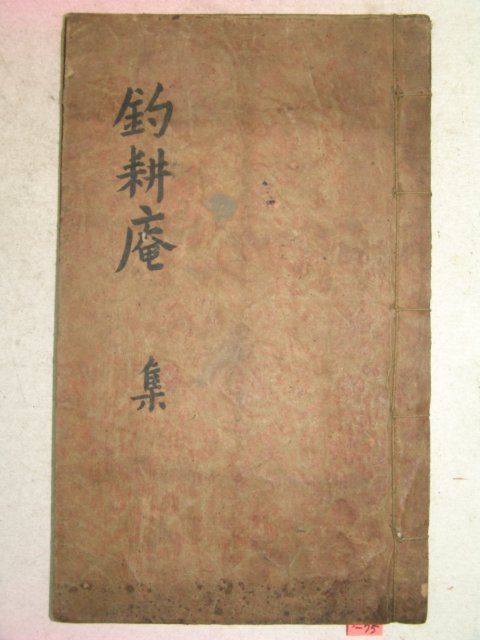 釣耕庵 集